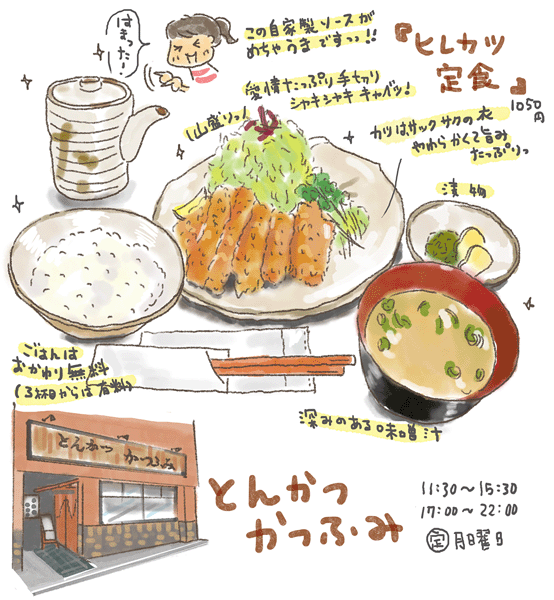 はまった!
この自家製ソースが
めちゃうまですっっ!!
『ヒレカツ
定食』
1050
円
愛情たっぷり手切り
シャキシャキキャベツ!
(山盛りっ)
カツはサックサクの衣
やわらかくて旨み
たっぷりっ
漬物
ごはんは
おかわり無料
(3杯目からは有料)
深みのある味噌汁
とんかつ かつふみ
とんかつ
かつふみ
11:30～15:30
17:00～22:00
定 月曜日